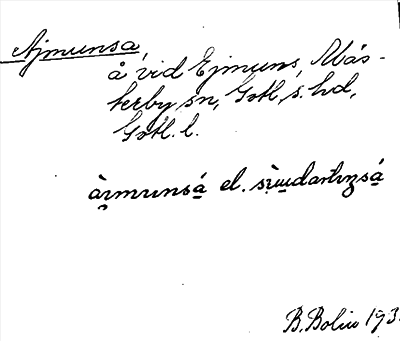 Ajmunsa,
å vid Ejmuns, Mäs-
terby sn, Gotl. s. hd,
Gotl. l.
àı̯munsá̱ el.
B. Bolin 193